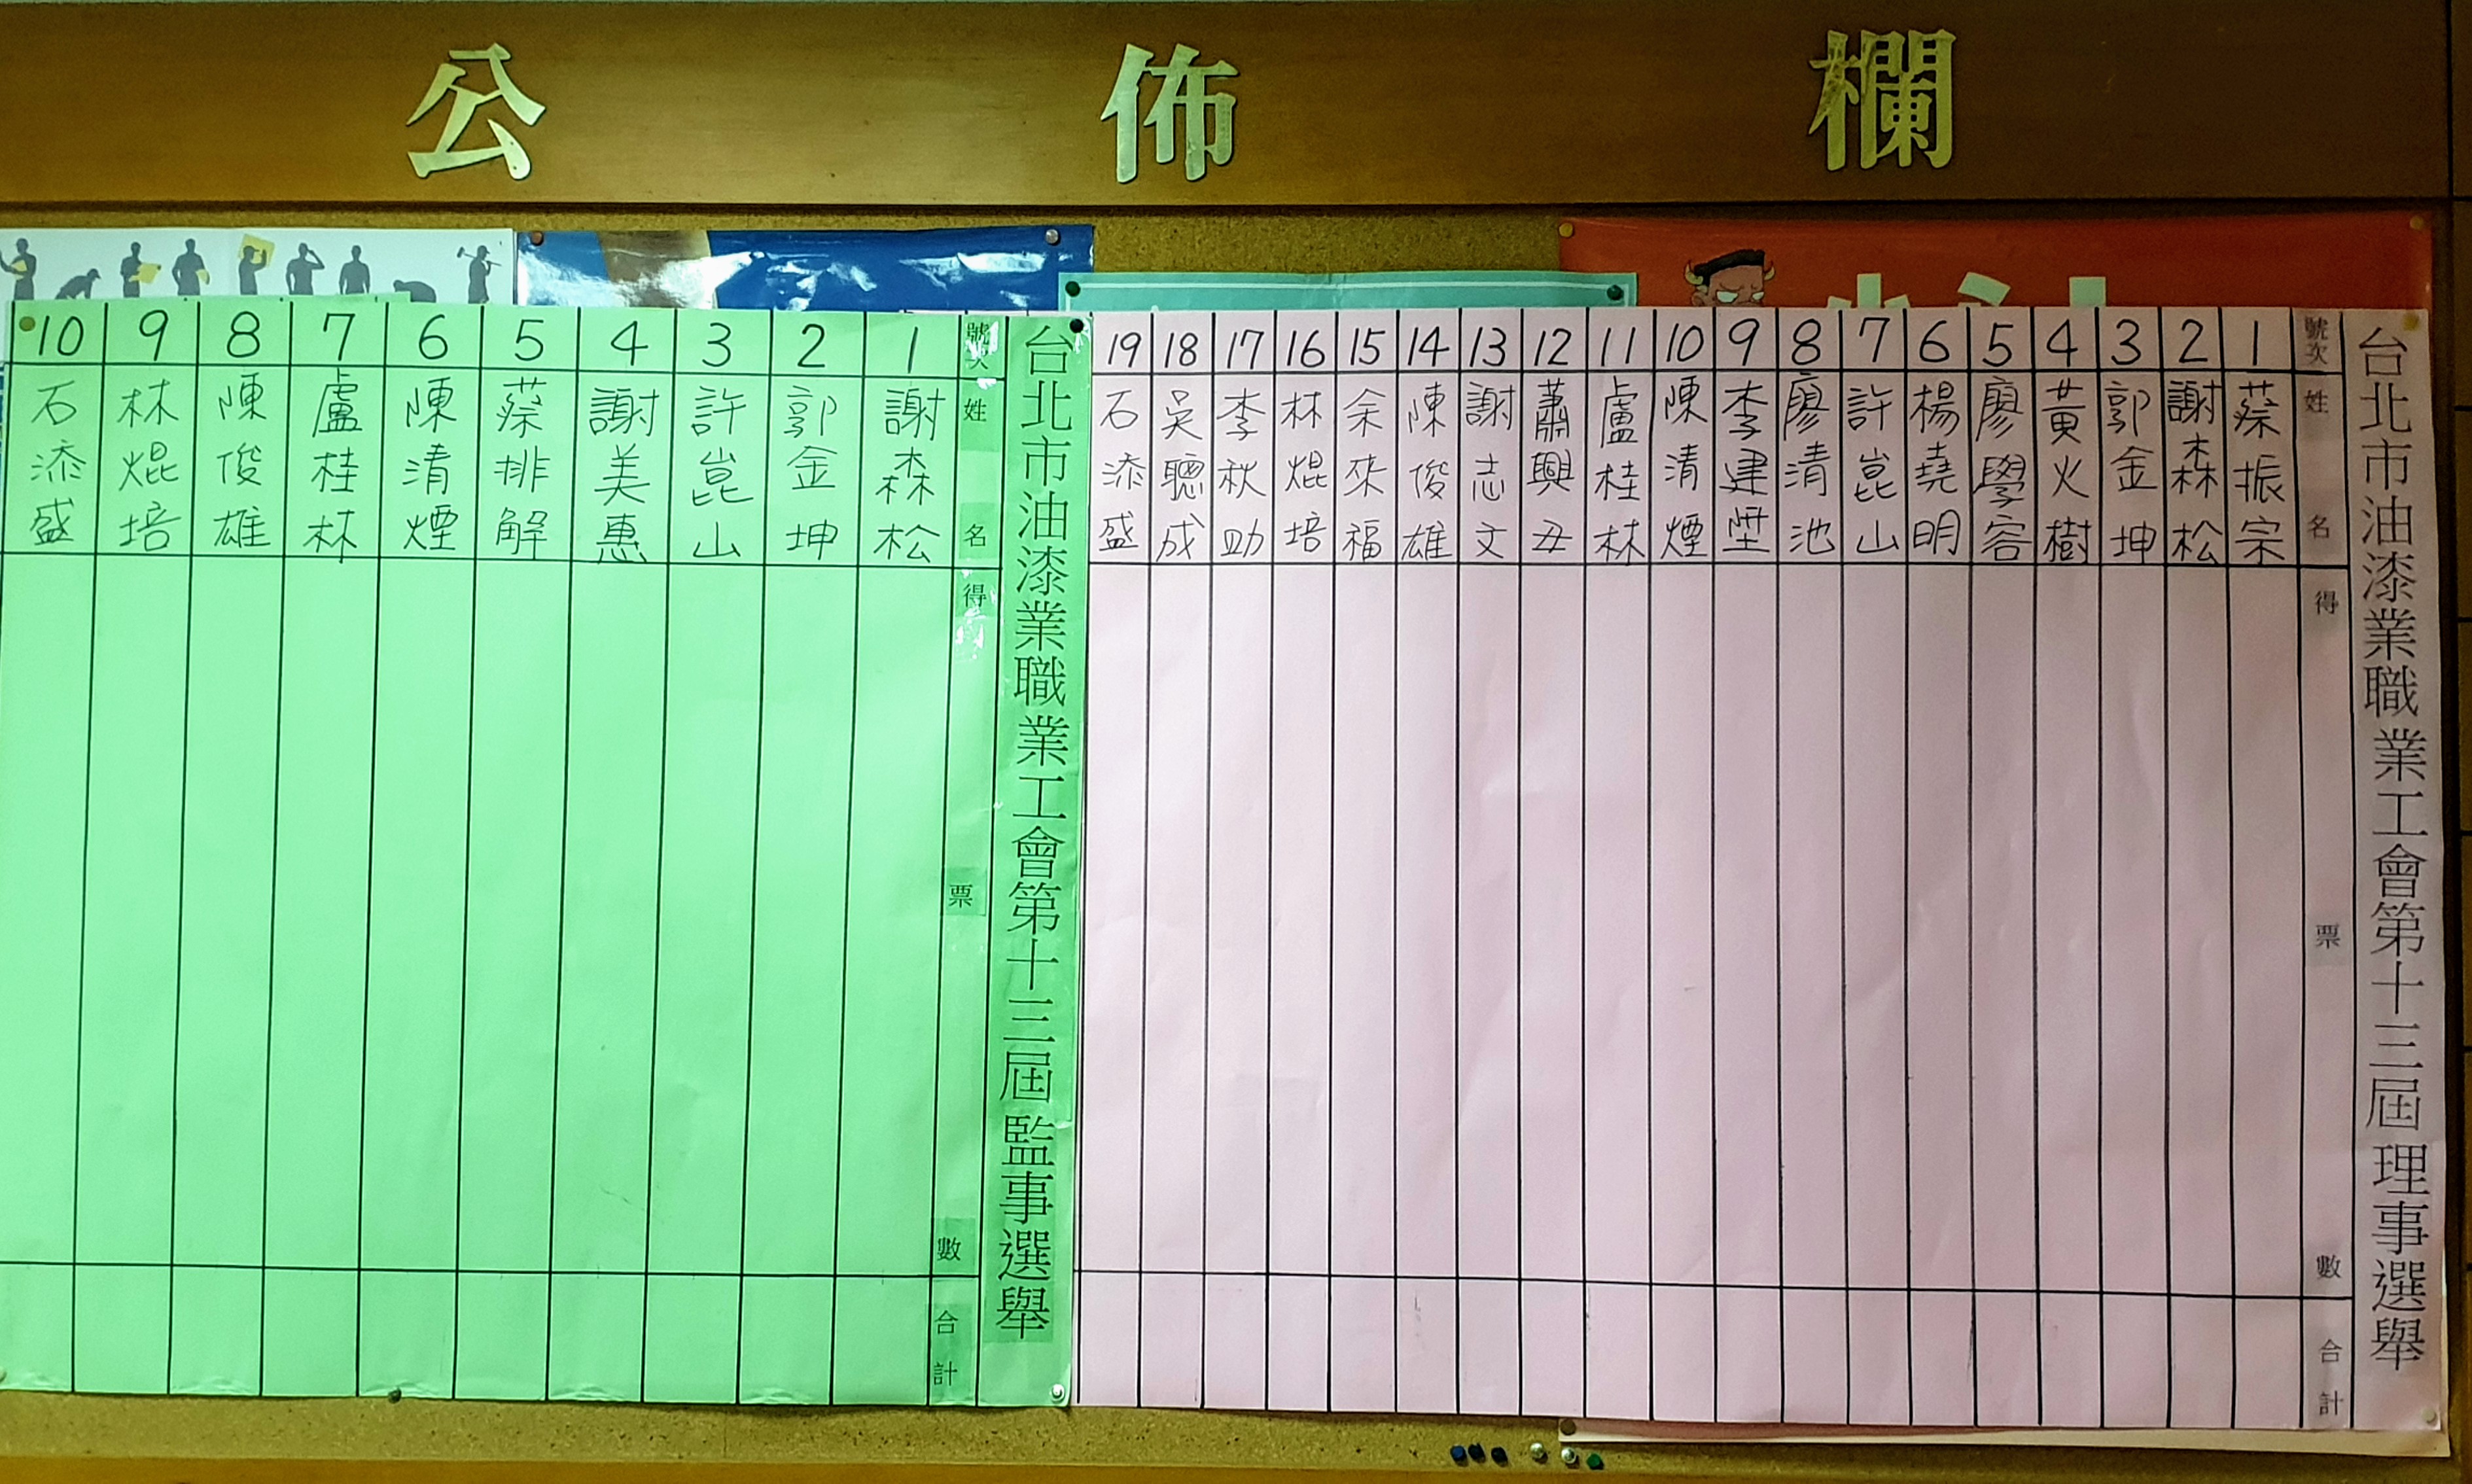 公佈欄
台北市油漆業職業工會第十三屆理事選舉
號次 姓名 得票數 合計
1 蔡振宗
2 謝森松
3 郭金坤
4 黃火樹
5 廖學容
6 楊堯明
7 許崑山
8 廖清池
9 李建塋
10 陳清煙
11 盧桂林
12 蕭興丑
13 謝志文
14 陳俊雄
15 余來福
16 林焜培
17 李秋助
18 吳聰成
19 石添盛
台北市油漆業職業工會第十三屆監事選舉
號次 姓名 得票數 合計
1 謝森松
2 郭金坤
3 許崑山
4 謝美惠
5 蔡排解
6 陳清煙
7 盧桂林
8 陳俊雄
9 林焜培
10 石添盛